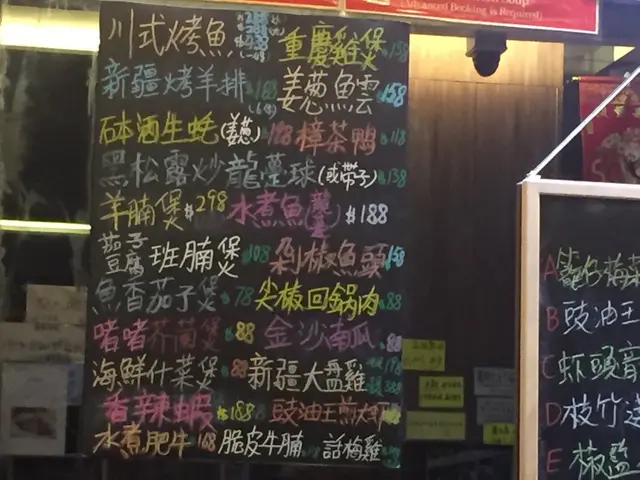 (Advanced Booking is Required)
川式烤魚 重慶雞煲 158
新疆烤羊排 168 (6件) 姜葱魚雲 158
砵酒生蚝(姜葱) 128 樟茶鴨 $118
黑松露炒龍躉球(或帶子) $138
羊腩煲 $298 水煮魚 $188
茄子豆腐班腩煲 108 剁椒魚頭 158
魚香茄子煲 $78 尖椒回鍋肉 $88
啫啫芥蘭煲 $88 金沙南瓜 88
海鮮什菜煲 $88 新疆大盤雞
香辣蝦 $188 豉油王煎大蝦
水煮肥牛 168 脆皮牛腩 話梅雞
A
B 豉油王
C 蝦頭
D 枝竹
E 椒鹽